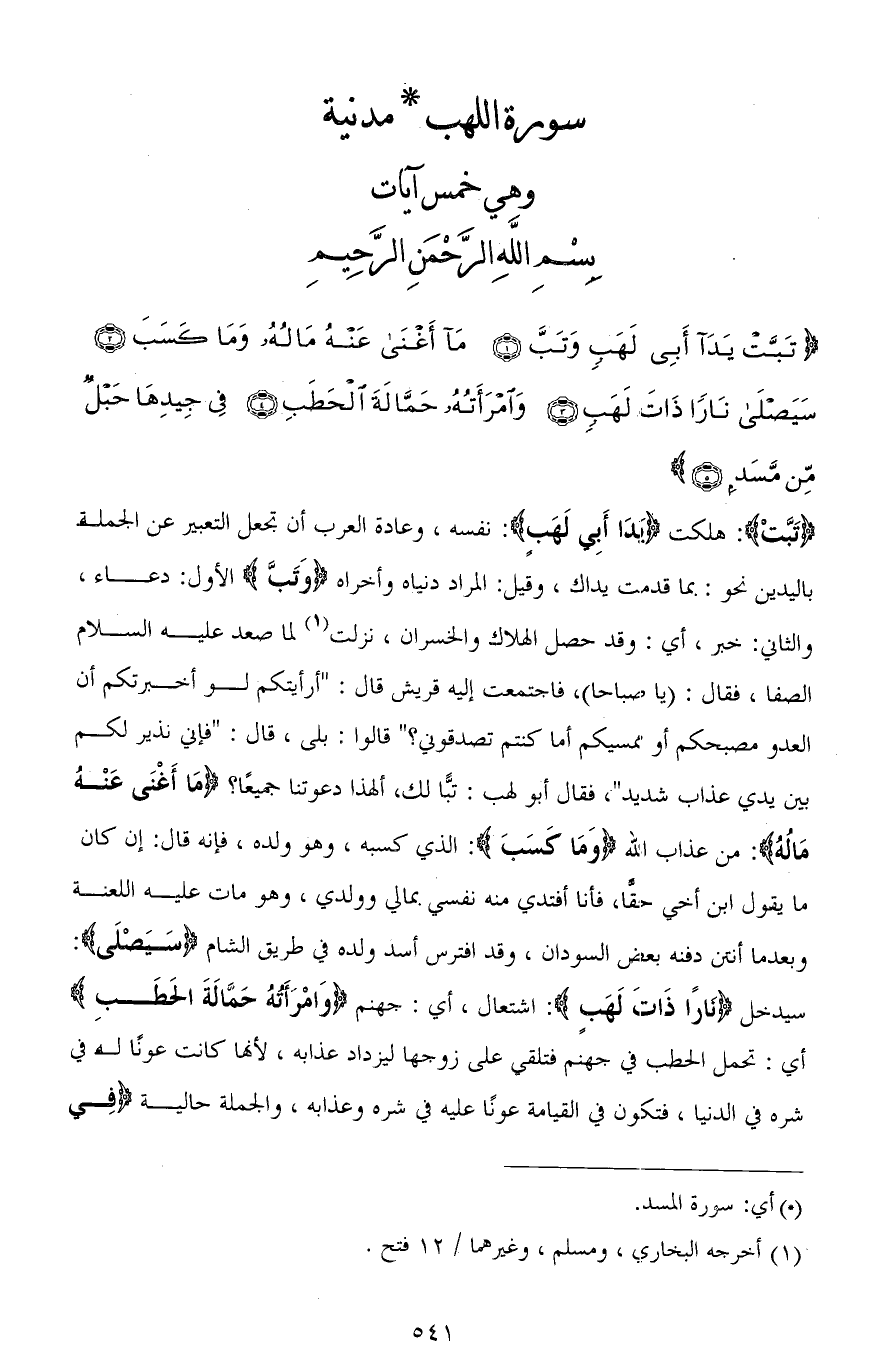 سورة اللهب * مدنية
وهي خمس آيات
بِسْمِ اللَّهِ الرَّحْمَنِ الرَّحِيمِ
﴿ تَبَّتْ يَدَآ أَبِى لَهَبٍ وَتَبَّ ۝١ مَآ أَغْنَىٰ عَنْهُ مَالُهُۥ وَمَا كَسَبَ ۝٢
سَيَصْلَىٰ نَارًا ذَاتَ لَهَبٍ ۝٣ وَٱمْرَأَتُهُۥ حَمَّالَةَ ٱلْحَطَبِ ۝٤ فِى جِيدِهَا حَبْلٌ
مِّن مَّسَدٍۭ ۝٥ ﴾
﴿تَبَّتْ﴾: هلكت ﴿يَدَا أَبِي لَهَبٍ﴾: نفسه ، وعادة العرب أن تجعل التعبير عن الجملة
باليدين نحو : بما قدمت يداك ، وقيل: المراد دنياه وأخراه ﴿وَتَبَّ ﴾ الأول: دعاء ،
والثاني: خبر ، أي : وقد حصل الهلاك والخسران ، نزلت(١) لما صعد عليه السلام
الصفا ، فقال : (يا صباحا)، فاجتمعت إليه قريش قال : "أرأيتكم لو أخبرتكم أن
العدو مصبحكم أو ممسيكم أما كنتم تصدقوني؟" قالوا : بلى ، قال : "فإني نذير لكم
بين يدي عذاب شديد"، فقال أبو لهب : تبًّا لك، ألهذا دعوتنا جميعًا؟ ﴿مَا أَغْنَى عَنْهُ
مَالُهُ﴾: من عذاب الله ﴿وَمَا كَسَبَ ﴾: الذي كسبه ، وهو ولده ، فإنه قال: إن كان
ما يقول ابن أخي حقًّا، فأنا أفتدي منه نفسي بمالي وولدي ، وهو مات عليه اللعنة
وبعدما أنتن دفنه بعض السودان ، وقد افترس أسد ولده في طريق الشام ﴿سَيَصْلَى﴾:
سيدخل ﴿نَارًا ذَاتَ لَهَبٍ ﴾: اشتعال ، أي : جهنم ﴿وَامْرَأَتُهُ حَمَّالَةَ الحَطَبِ ﴾
أي : تحمل الحطب في جهنم فتلقي على زوجها ليزداد عذابه ، لأنها كانت عونًا له في
شره في الدنيا ، فتكون في القيامة عونًا عليه في شره وعذابه ، والجملة حالية ﴿فِي
(*) أي: سورة المسد.
(١) أخرجه البخاري ، ومسلم ، وغيرهما / ١٢ فتح .
٥٤١